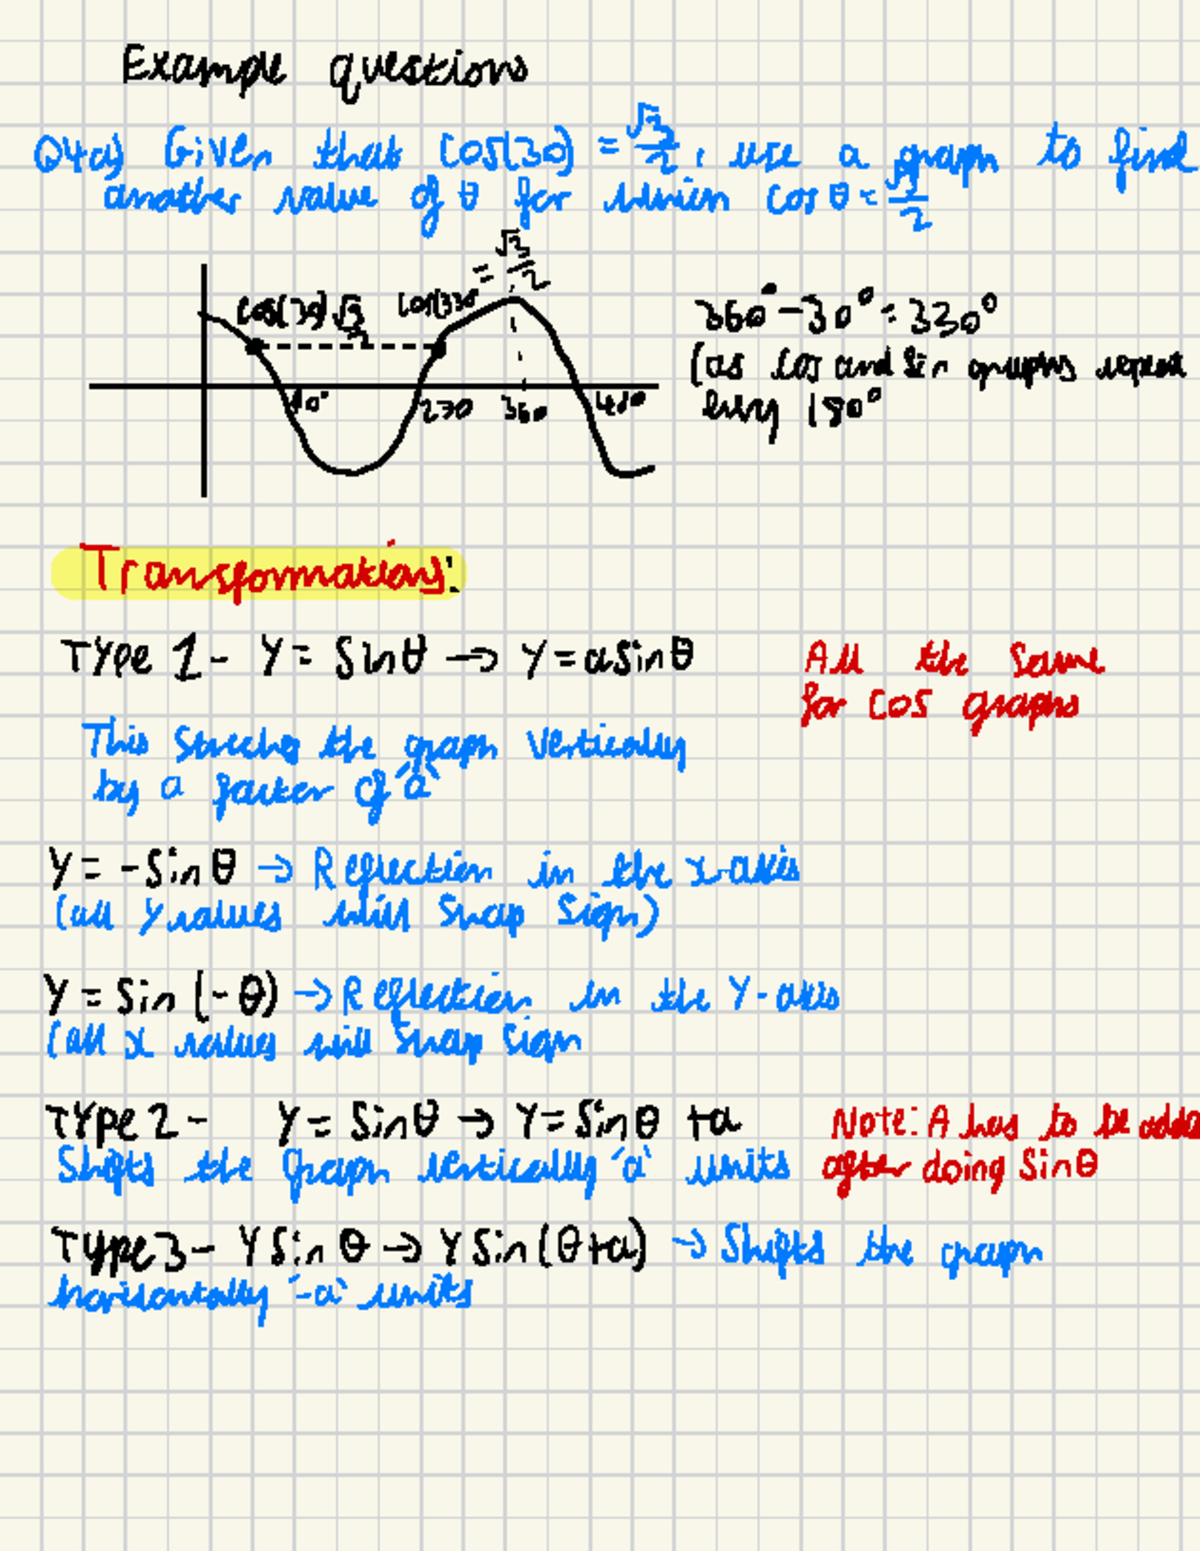 Example questions
Q4a) Given that cos(30) = √3/2, use a graph to find
another value of θ for which cos θ = √3/2
= √3/2
cos(30) √3/2 cos(330°
90° 270 360 450
360° - 30° = 330°
(as cos and sin graphs repeat
every 180°
Transformations:
Type 1 - y = sinθ → y = asinθ
All the same
for cos graphs
This streches the graph vertically
by a factor of 'a'
y = -sinθ → Reflection in the x-axis
(all y values will swap sign)
y = sin (-θ) → Reflection in the y-axis
(all x values will swap sign
Type 2 - y = sinθ → y = sinθ +a
Note: A has to be adde
Shifts the graph vertically 'a' units
after doing sinθ
Type 3 - y sin θ → y sin(θ+a) → Shifts the graph
horizontally '-a' units